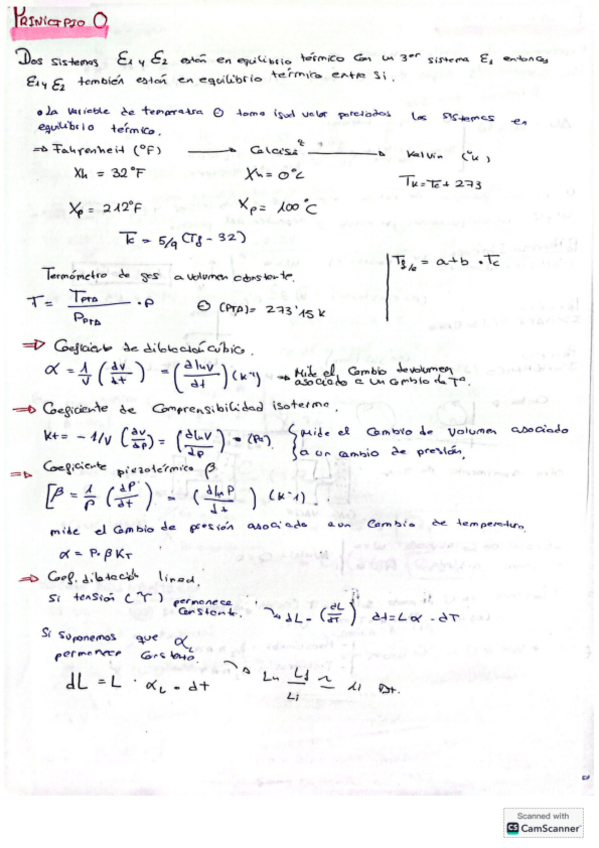 PRINICIPIO 0
Dos sistemas ε1 y ε2 están en equilibrio térmico con un 3er sistema ε1 entonces
ε1 y ε2 tembién están en equilibrio térmico entre si.
• La variable de temperatra Θ toma igual valor para todos los sistemas en
equilibrio térmico.
⇒ Fahrenheit (°F) → Celcius → Kelvin (°K)
Xh = 32°F Xh = 0°C Tk = Tc + 273
Xp = 212°F Xp = 100°C
Tc = 5/9 (Tf - 32)
Termómetro de gas a volumen constante.
Tf/c = a + b · Tc
T = TPTA / PPTA · P Θ (PTA) = 273'15 K
⇒ Coeficiente de dilatación cúbico.
α = 1/V (dv/dt) = (dlnV/dt) (K⁻¹) → Mide el cambio de volumen
asociado a un cambio de Tª.
⇒ Coeficiente de Comprensibilidad isotermo.
Kt = - 1/V (∂v/∂p) = (dlnV/dp) = (Pa) { Mide el Cambio de volumen asociado
a un cambio de presión.
⇒ Coeficiente piezotérmico β
[β = 1/P (dP/dt) = (dlnP/dt) (K-1)
mide el cambio de presión asociado a un cambio de temperatura.
α = P · β KT
⇒ Coef. dilatación lineal.
Si tensión (τ) permanece
constante. dL = (dL/dT) dt = L α · dT
Si suponemos que αL
permanece constante.
dL = L · αL · dt → Ln Ld/Li ≃ Δt.
Scanned with
CS CamScanner